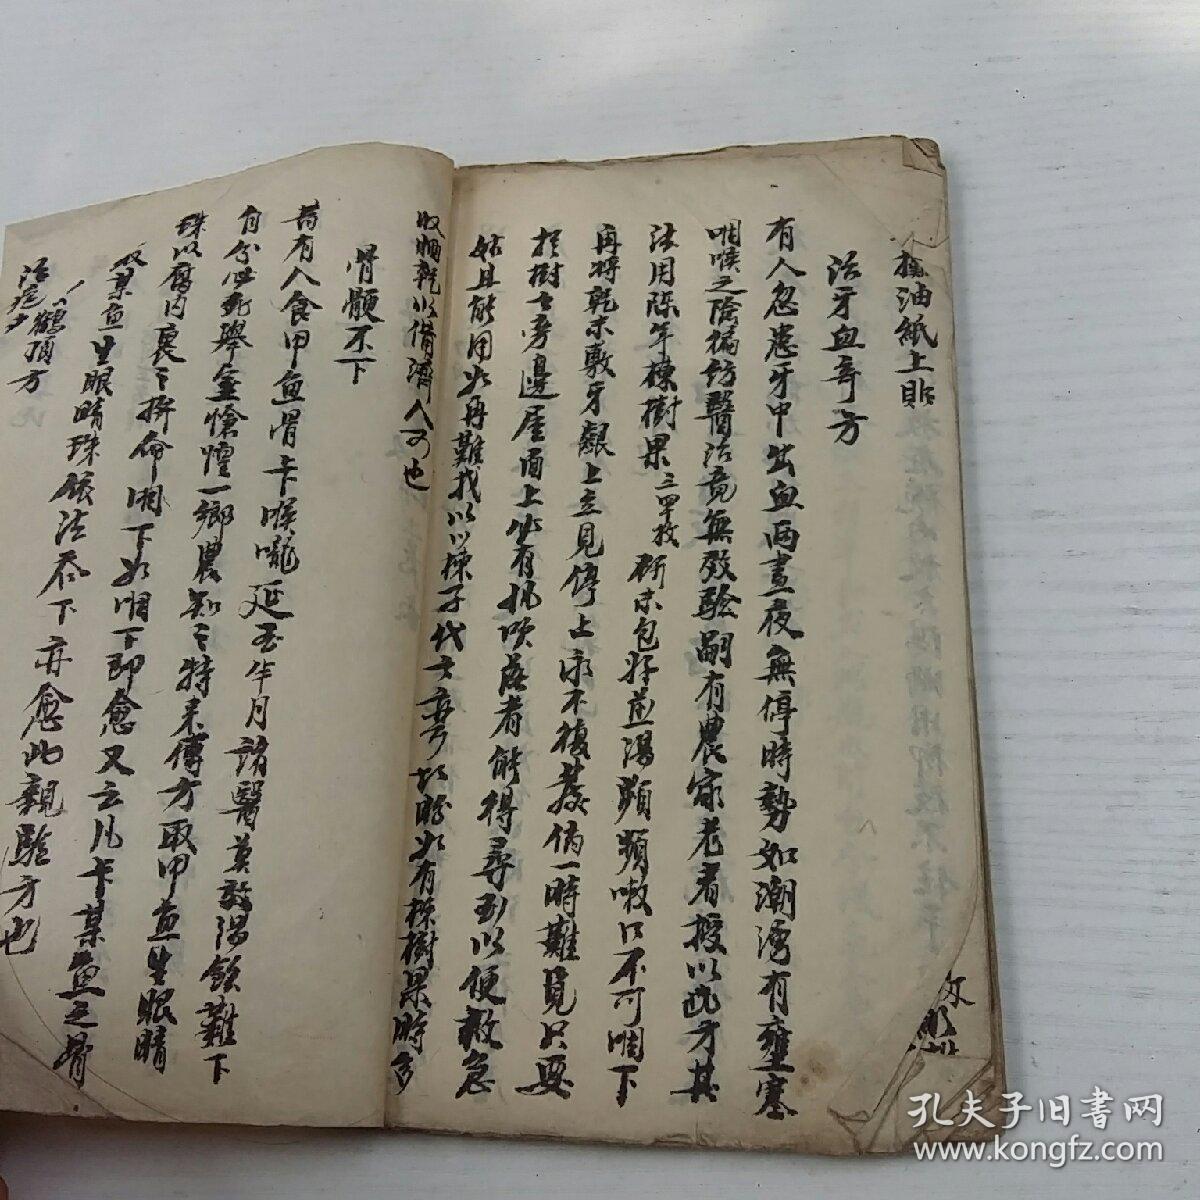 油紙上貼
治牙血奇方
有人忽患牙中出血兩晝夜無停時勢如潮湧有壅塞
咽喉之險徧訪醫治竟無效驗嗣有農家老者授以此方其
法用陈年楝樹果三四枚研末包好煎湯頻頻嗽口不可咽下
再将乾末敷牙齦上立見停止永不復發倘一時難覓只要
於樹之旁邊屋面上必有风吹落者能得尋到以便救急
姑且能用如再難找以以楝子代之亦可故雖如有楝樹果時多
收晒乾以備濟人可也
骨骾不下
昔有人食甲魚骨卡喉嚨延至半月諸醫莫效湯飲難下
自分必死舉室愴惶一鄉農知之特来傳方取甲魚生眼睛
珠以腐肉裹之拚命咽下如咽下即愈又云凡卡某魚之骨
取某魚生眼睛珠依法吞下亦愈此親驗方也
鶴頂方
治疟
孔夫子旧書网
www.kongfz.com